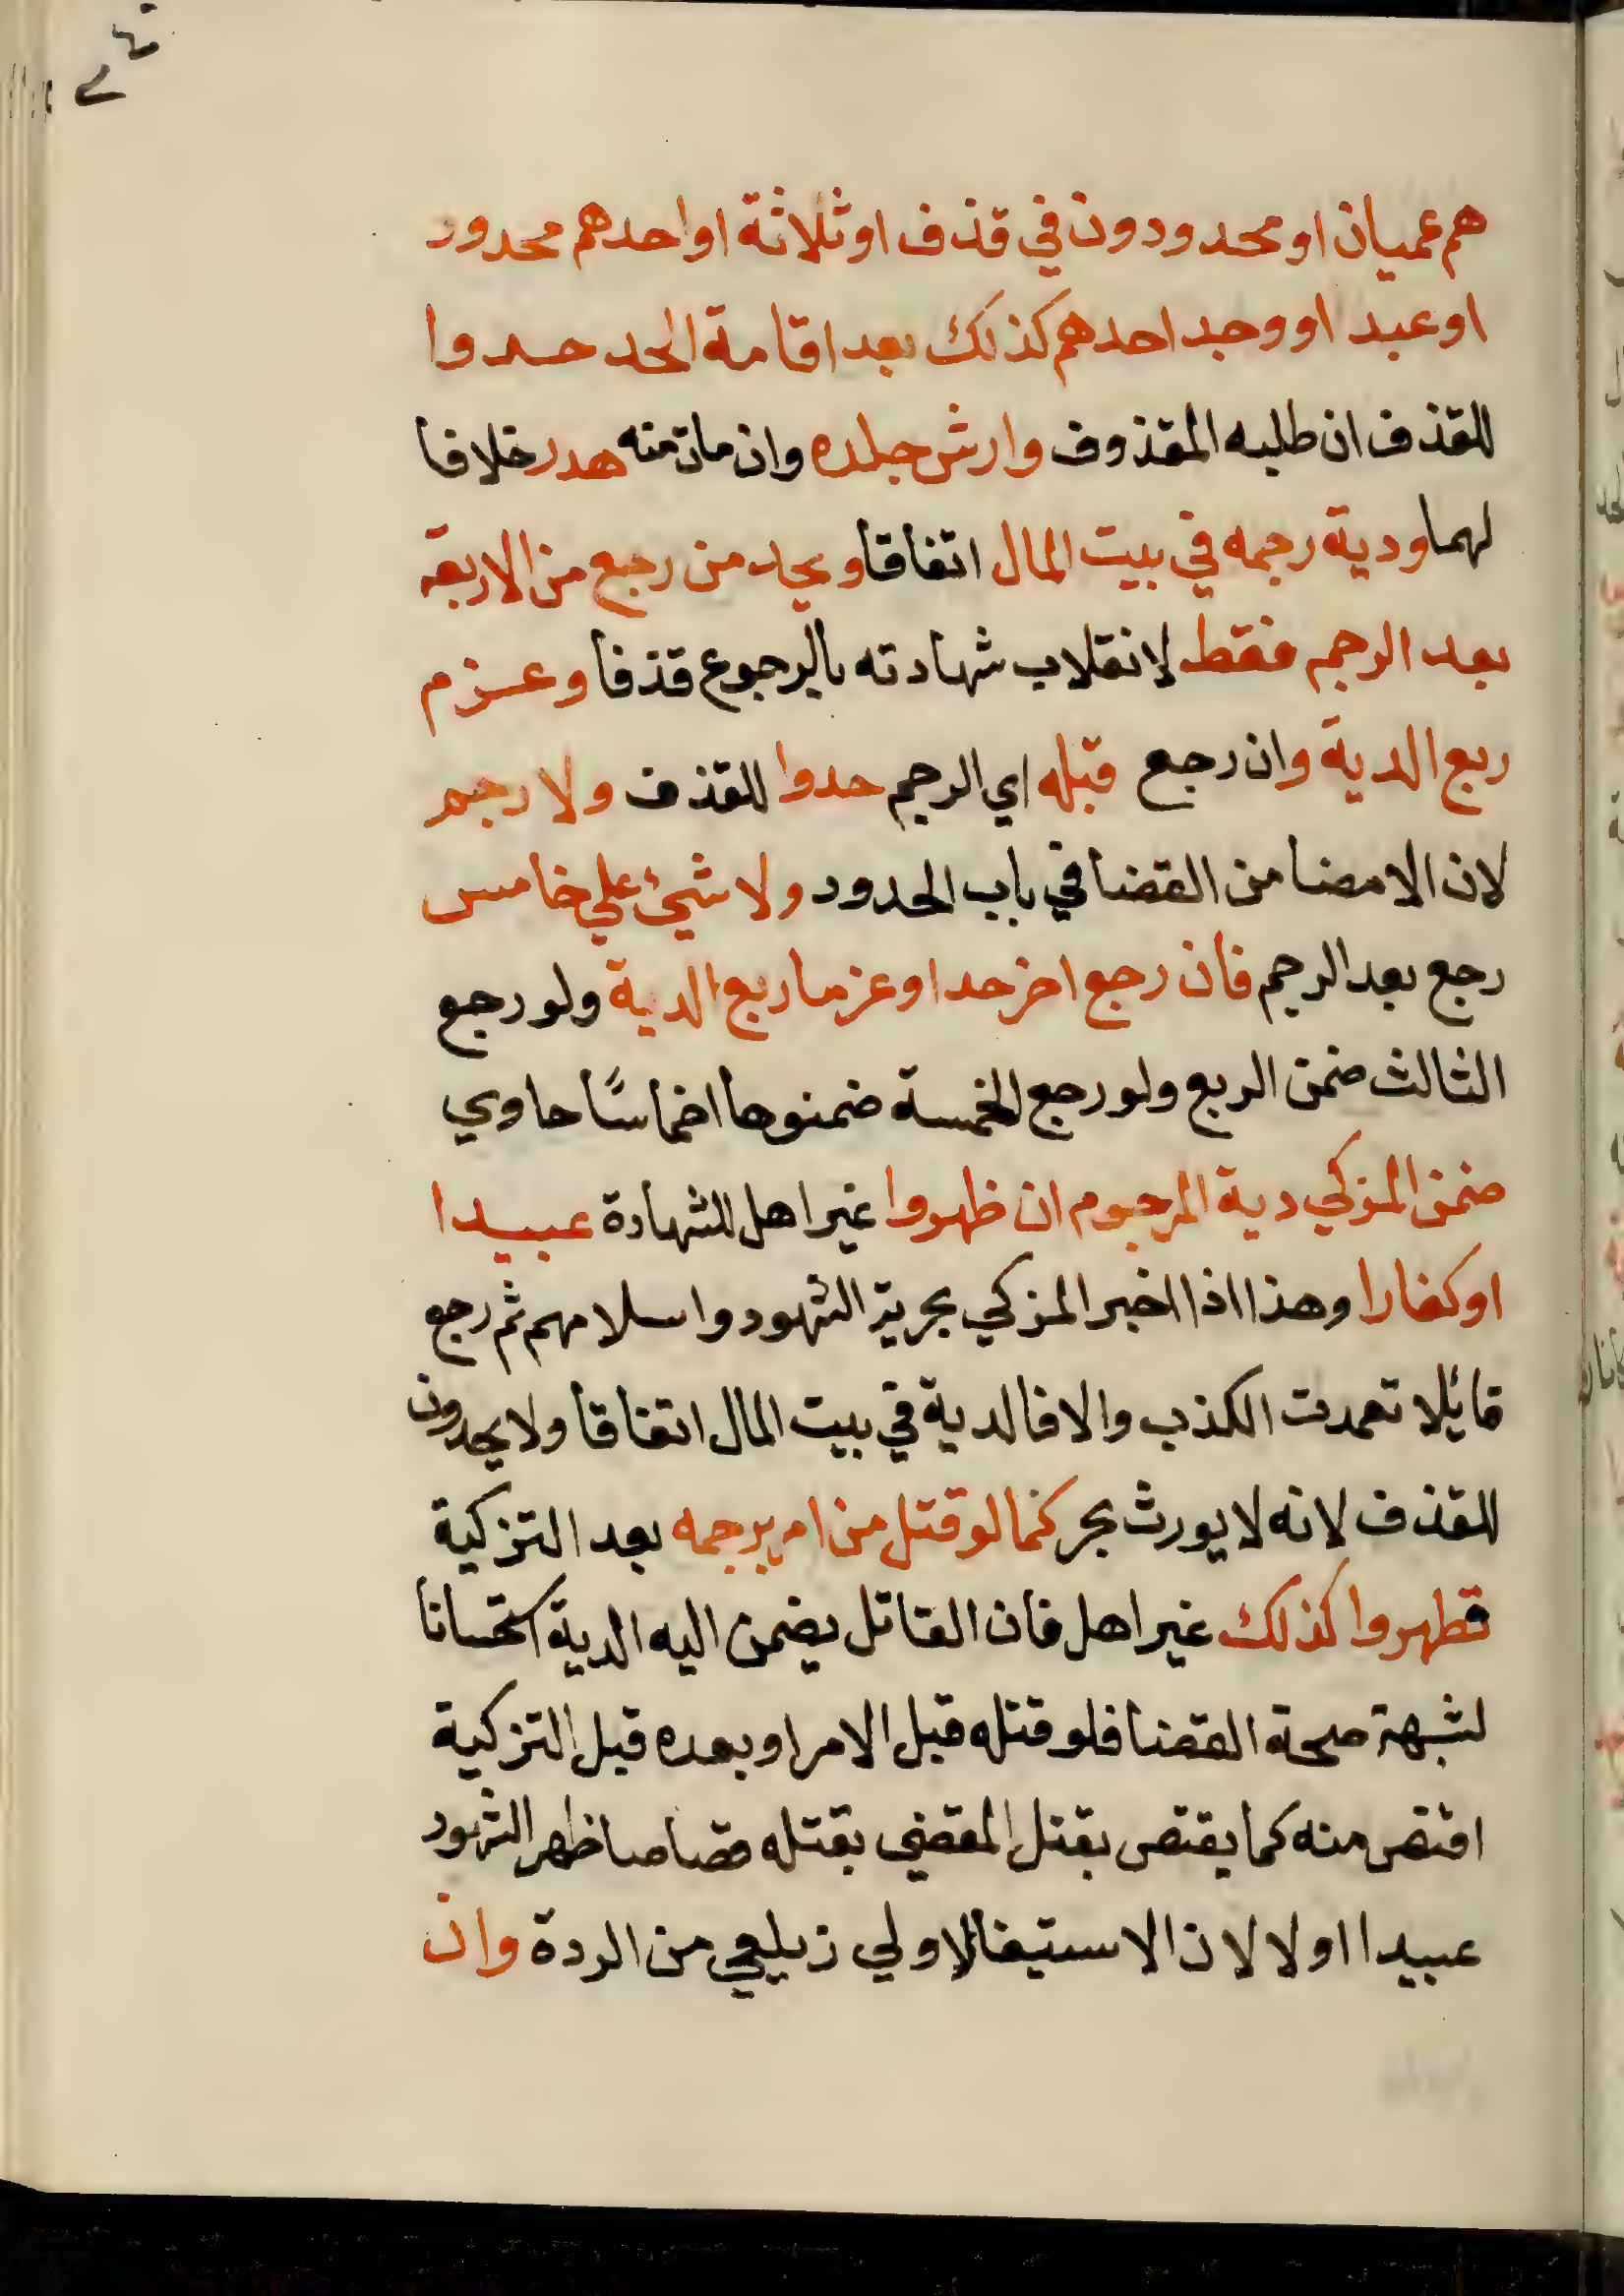 هم عميان او محدودون في قذف او ثلاثة او احدهم محدود
او عبد او وجد احدهم كذلك بعد اقامة الحد حدوا
للقذف ان طلبه المقذوف وارش جلده وان مات منه هدر خلافا
لهما ودية رجمه في بيت المال اتفاقا ويحد من رجع من الاربعة
بعد الرجم فقط لانقلاب شهادته بالرجوع قذفا وعزم
ربع الدية وان رجع قبله اي الرجم حدوا للقذف ولا رجم
لان الامضا من القضا في باب الحدود ولا شيئ علي خامس
رجع بعد الرجم فان رجع اخر حدا وعزما ربع الدية ولو رجع
الثالث ضمن الربع ولو رجع الخمسة ضمنوها اخماسًا حاوي
ضمن المزكي دية المرجوم ان ظهروا غير اهل للشهادة عبيدا
او كفارا وهذا اذا اخبر المزكي بحرية الشهود واسلامهم ثم رجع
قائلا تعمدت الكذب والا فالدية في بيت المال اتفاقا ولا يحدون
للقذف لانه لا يورث بحر كما لو قتل من امر برجمه بعد التزكية
فظهروا كذلك غير اهل فان القاتل يضمن اليه الدية استحسانا
لشبهة صحة القضا فلو قتله قبل الامر او بعده قبل التزكية
اقتص منه كما يقتص بقتل المقضي بقتله قصاصا ظهر الشهود
عبيدا اولا لان الاستيفا للاولي زيلعي من الردة وان